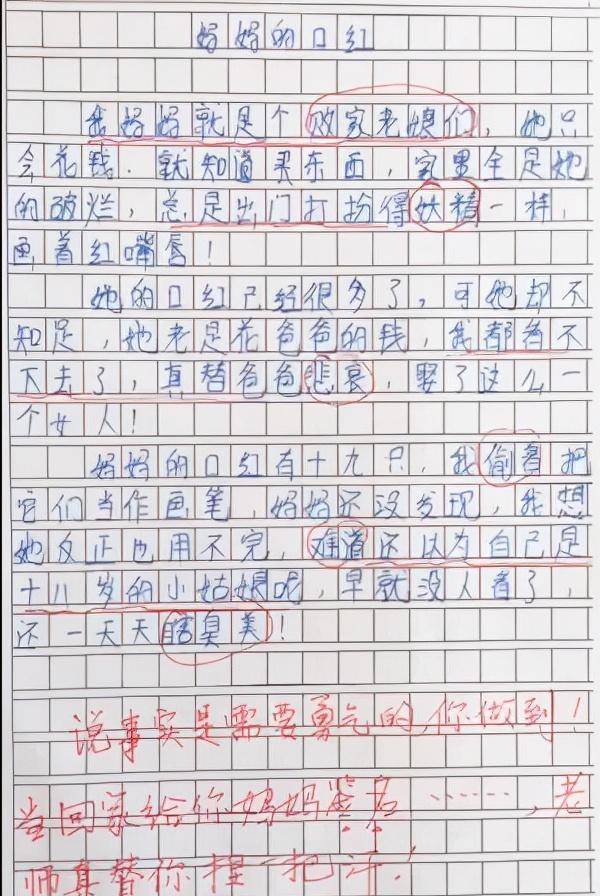 妈妈的口红
我妈妈就是个败家老娘们，她只
会花钱．就知道买东西，家里全是她
的破烂，总是出门打扮得妖精一样，
画着红嘴唇！
她的口红已经很多了，可她却不
知足，她老是花爸爸的钱，我都看不
下去了，真替爸爸悲哀，娶了这么一
个女人！
妈妈的口红有十九只，我偷着把
它们当作画笔，妈妈还没发现，我想
她反正也用不完，难道还以为自己是
十八岁的小姑娘呢，早就没人看了，
还一天天瞎臭美！
说事实是需要勇气的，你做到！
当回家给你妈妈签名……，老
师真替你捏一把汗！